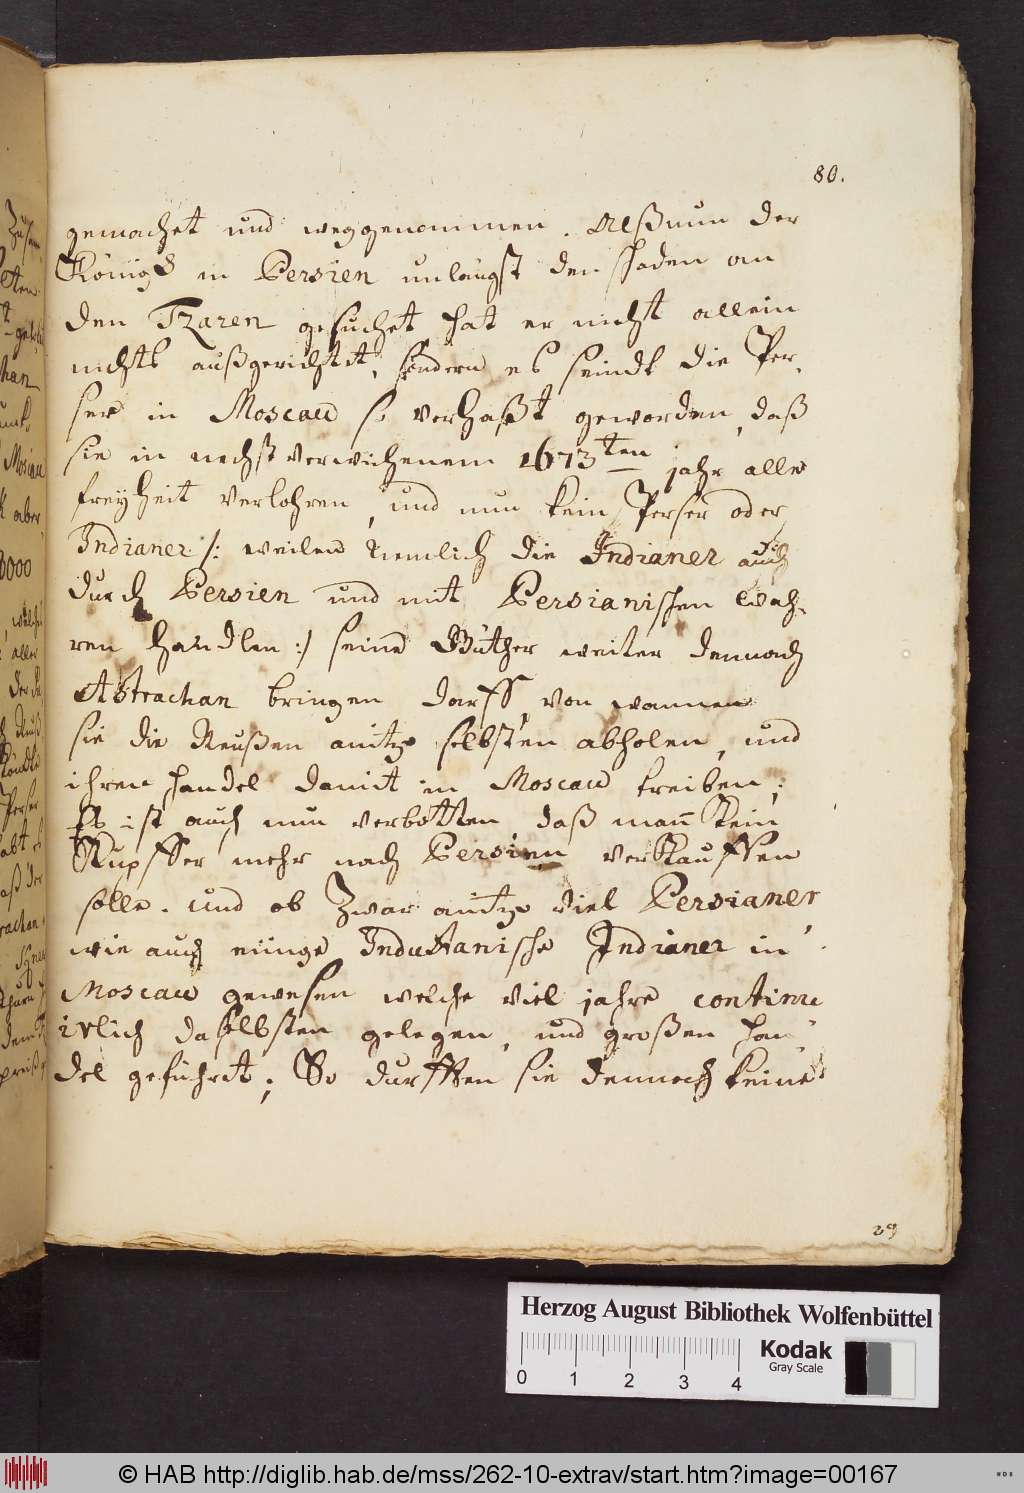 80.
gemachet und weggenommen. Alßnun der
König in Persien unlängst den schaden an
den Tzaren gesuchet hat er nicht allein
nichts außgerichtet, sondern es seindt die Per-
ser in Moscau so verhaßt geworden, daß
sie in nechst verwichenem 1673ten jahr alle
freyheit verlohren, und nun kein Perser oder
Indianer /: weilen nemlich die Indianer auch
durch Persien und mit Persianischen Wah-
ren handlen :/ seine Güther weiter dennach
Astrachan bringen darff, von wannen
sie die Reußen anitzo selbsten abholen, und
ihren handel damit in Moscau treiben;
Es ist auch nun verbotten daß mann kein
Kupffer mehr nach Persien verkauffen
solle. und ob zwar anitzo viel Persianer
wie auch einige Industanische Indianer in
Moscau gewesen welche viel jahre continu
irlich daselbsten gelegen, und großen han-
del geführet; So durfften sie dennoch keine
29
Herzog August Bibliothek Wolfenbüttel
0 1 2 3 4
Kodak
Gray Scale
© HAB http://diglib.hab.de/mss/262-10-extrav/start.htm?image=00167